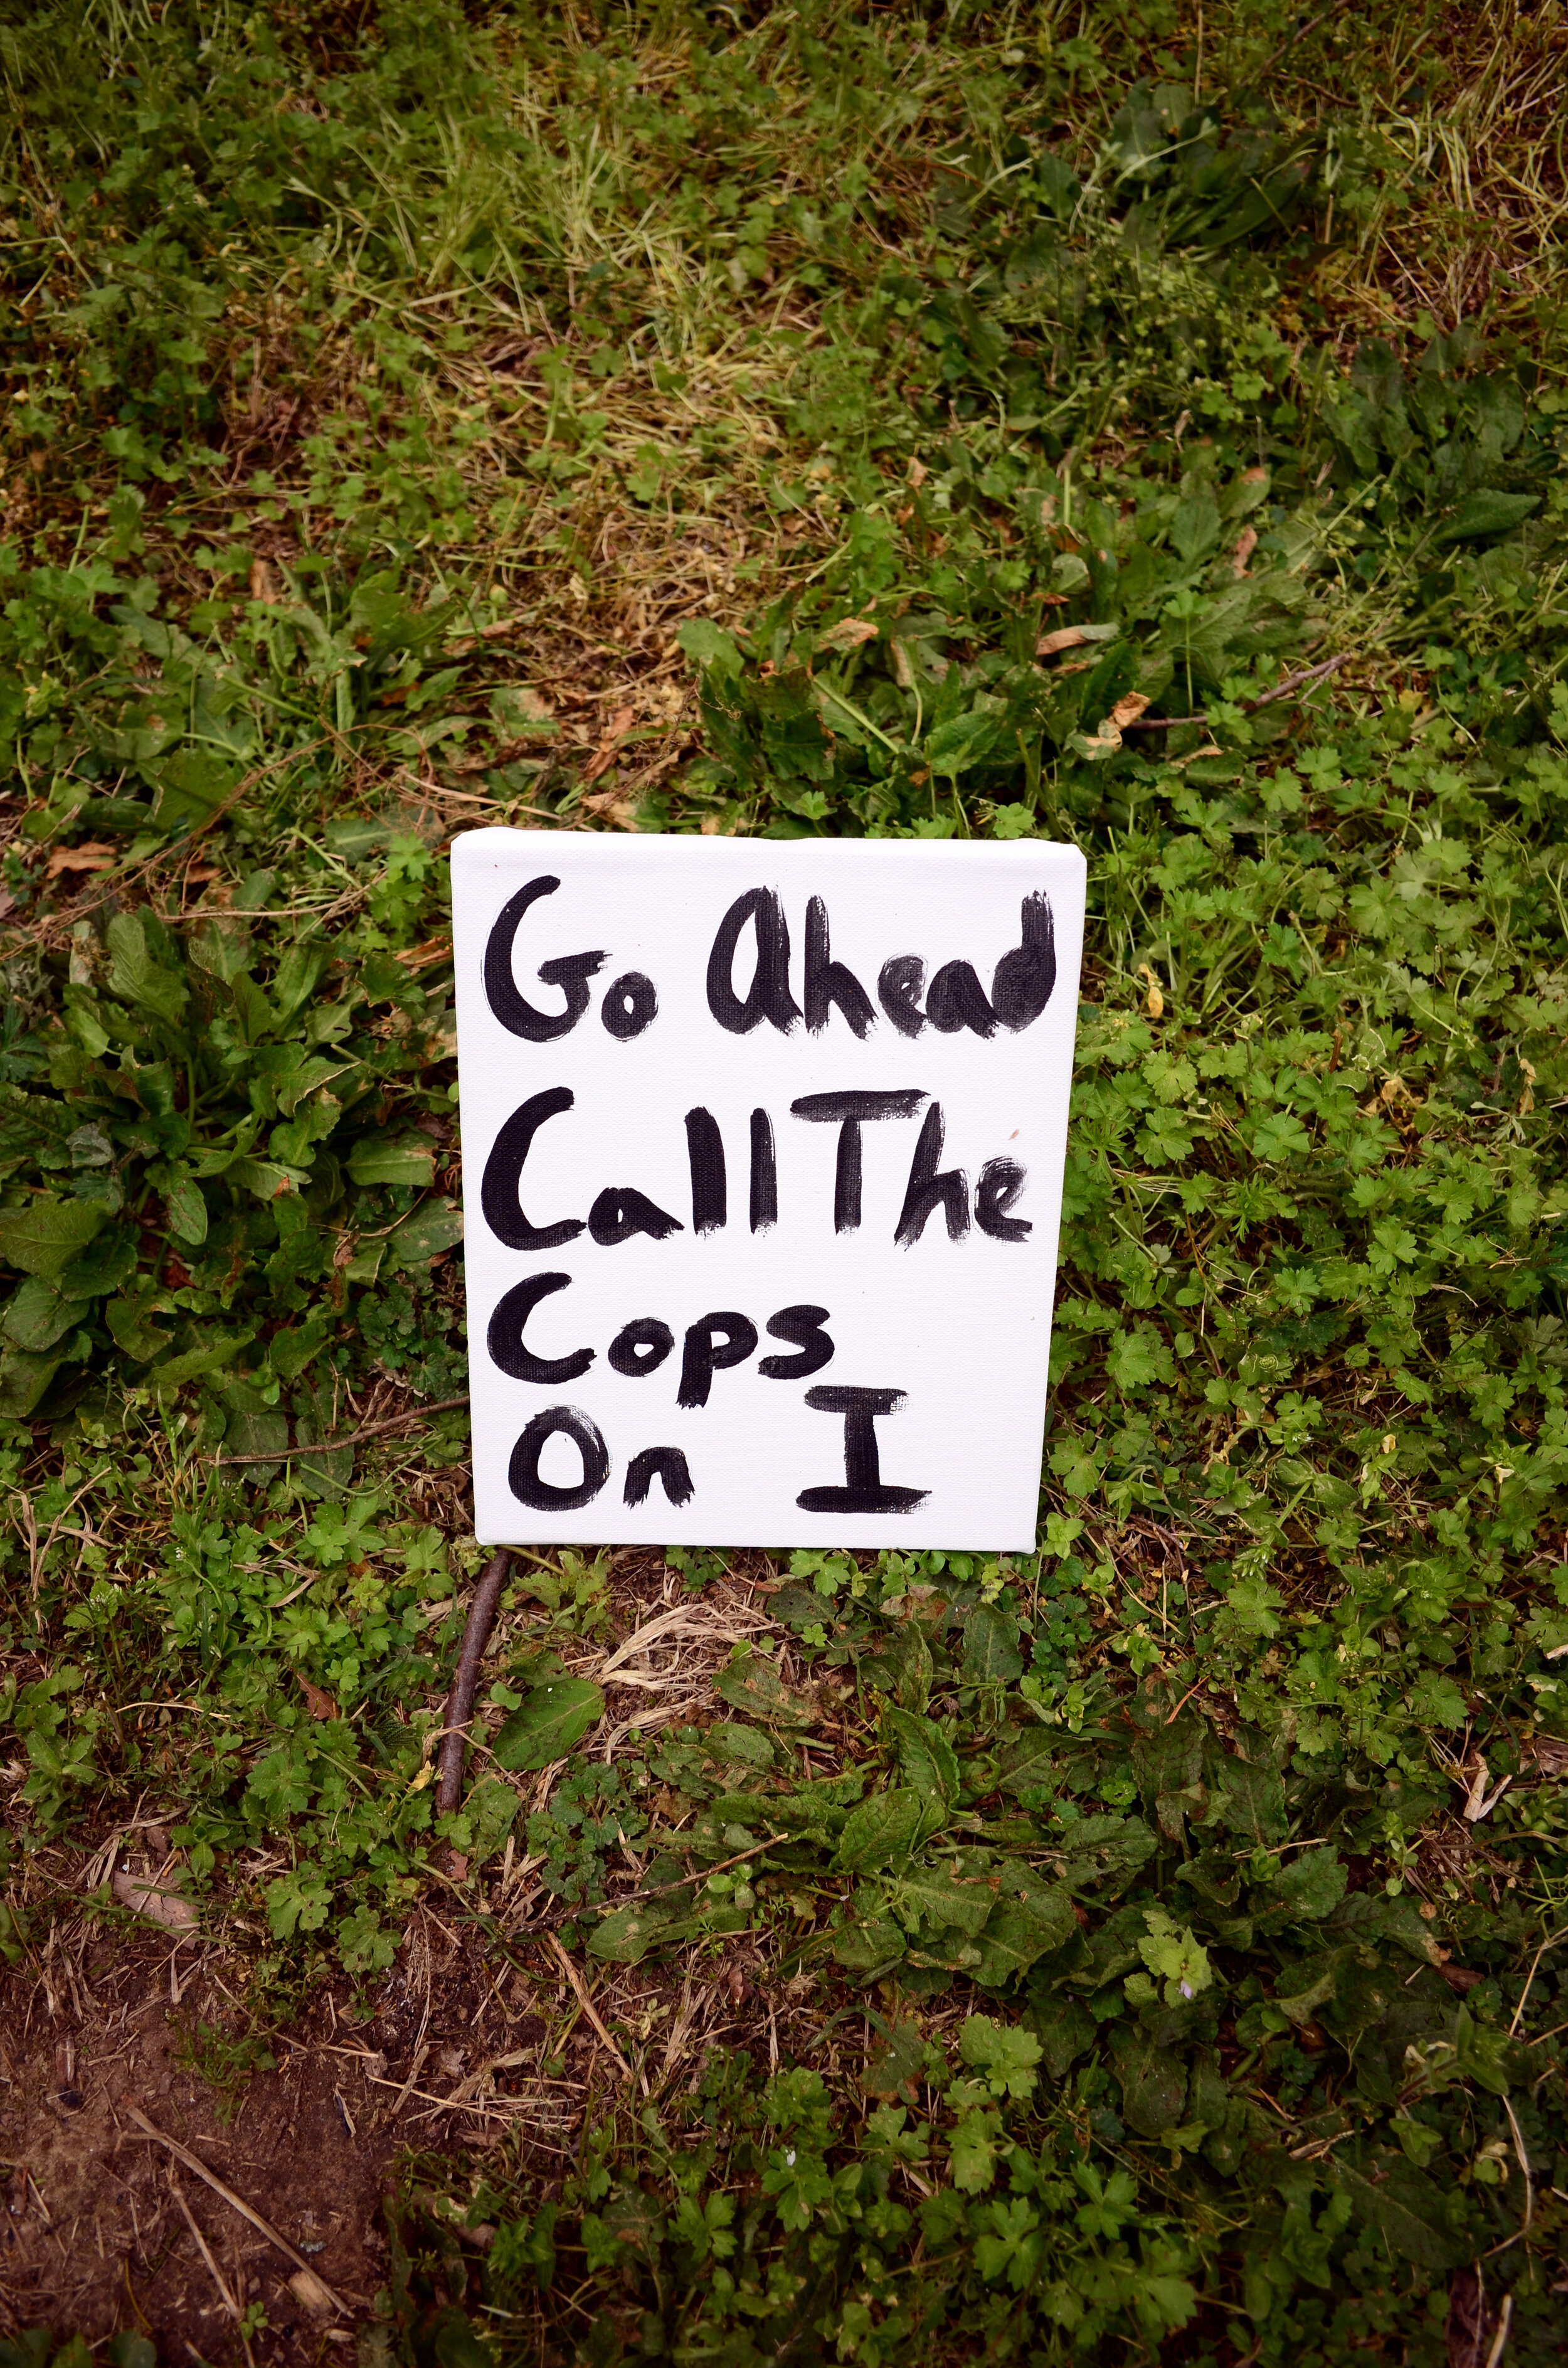 Go Ahead
Call The
Cops
On I